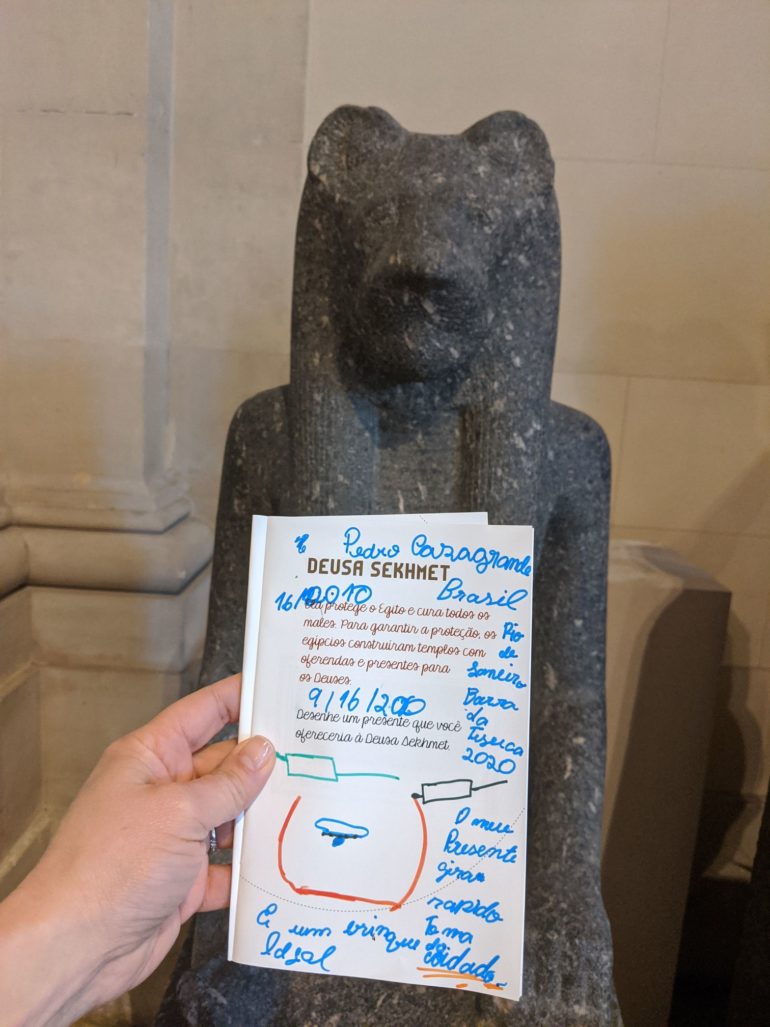 Pedro Cazagrande
DEUSA SEKHMET
Brasil
16/ 2010
Ela protege o Egito e cura todos os
males. Para garantir a proteção, os
egípcios construíram templos com
oferendas e presentes para
os Deuses.
Rio
de
Janeiro
Barra
da
Tijuca
2020
9/16/2020
Desenhe um presente que você
ofereceria à Deusa Sekhmet.
O meu
Presente
gira
rapido
Toma
cuidado
E um brinque do
Ideal